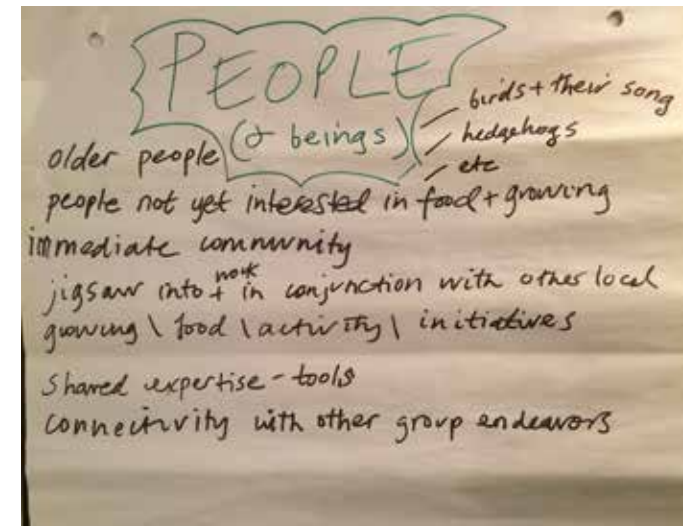 PEOPLE
(+ beings)
birds + their song
hedgehogs
etc
older people
people not yet interested in food + growing
immediate community
jigsaw into + work in conjunction with other local
growing \ food \ activity \ initiatives
shared expertise - tools
connectivity with other group endeavors